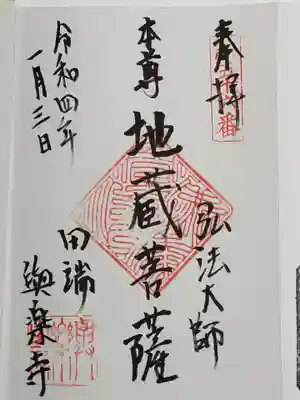 奉拝
弘法大師
本尊
地蔵菩薩
田端
與楽寺
令和四年
一月三日
番